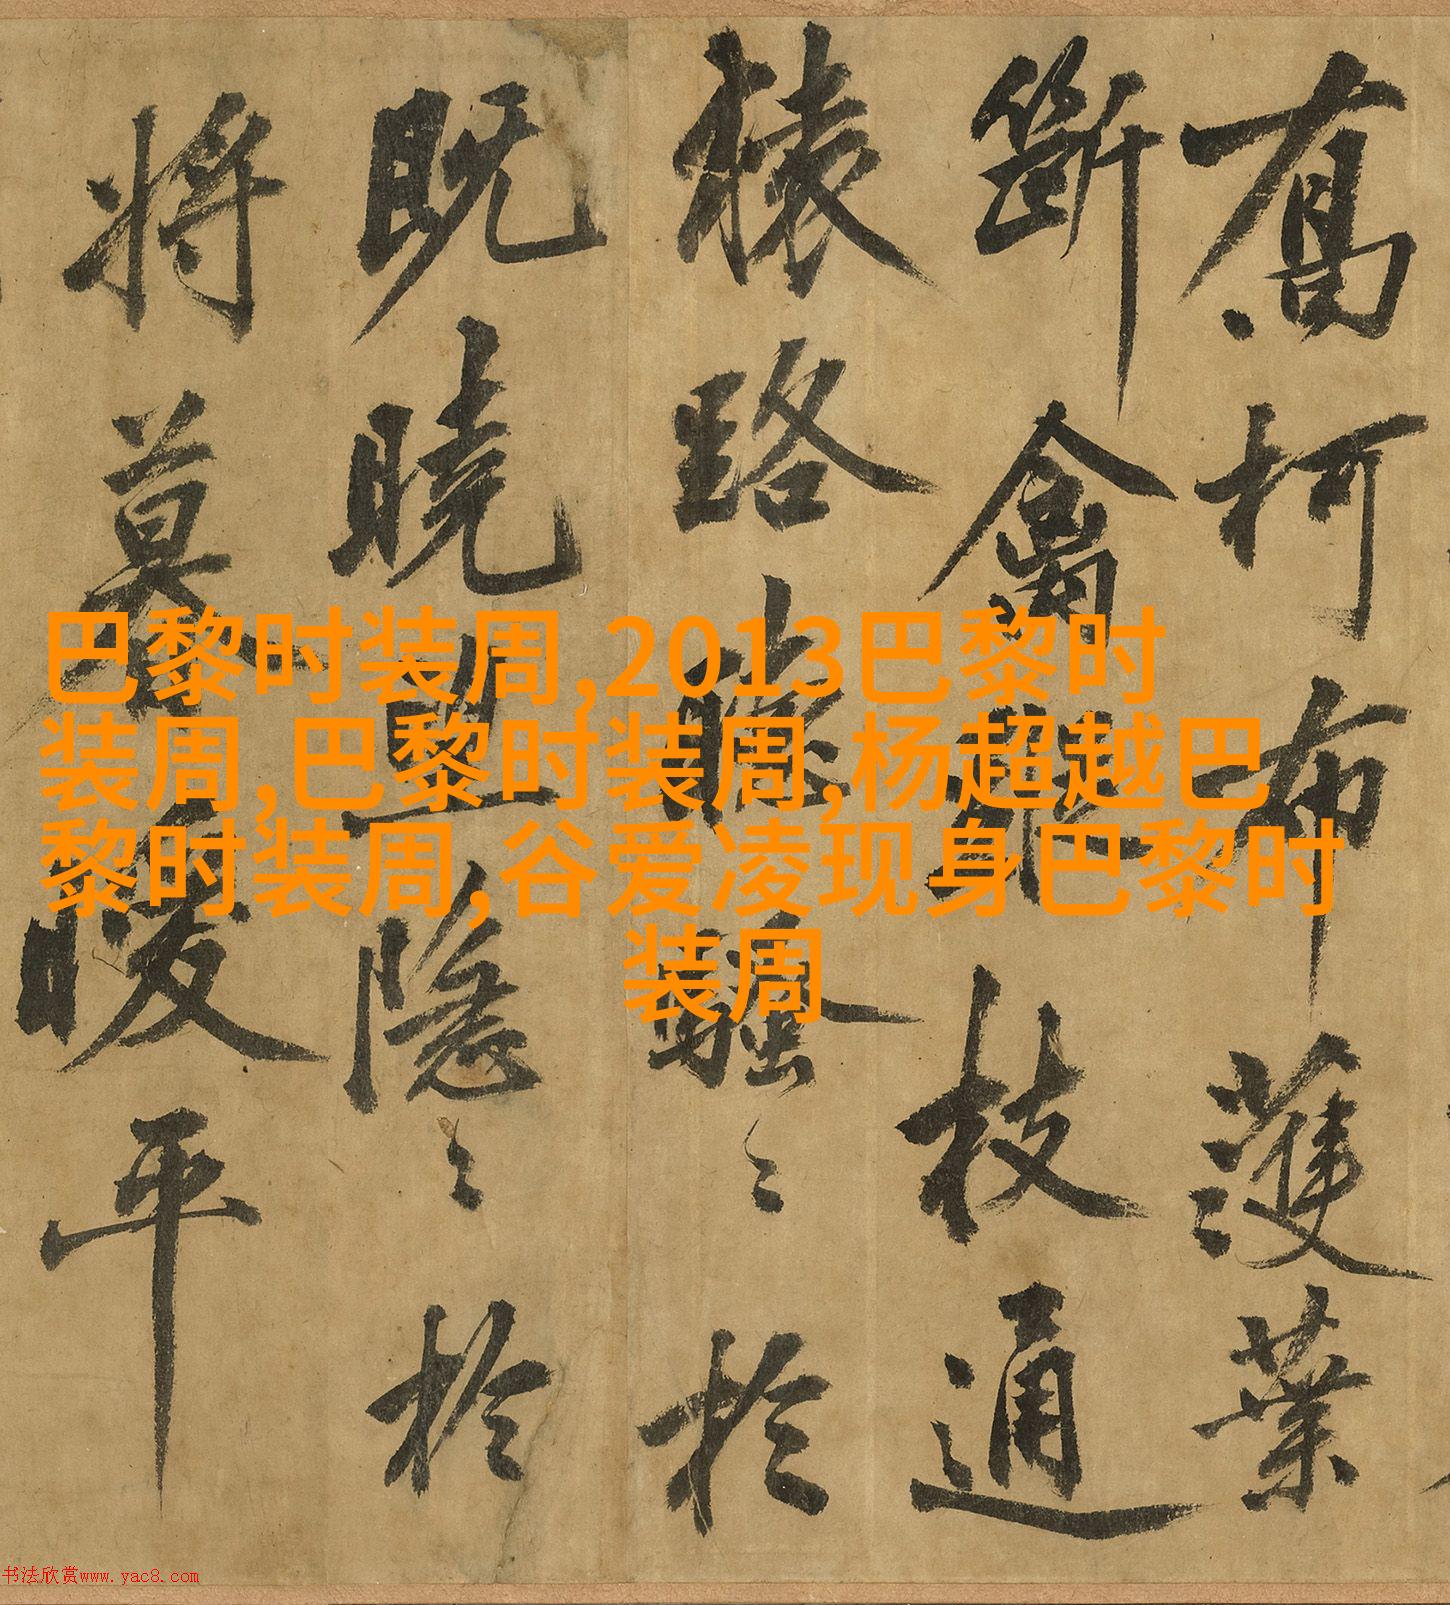 高柯布濩葉
斷禽蹤枝通
猨路聽騷〻於
既曉望隱〻於
將暮曖平
巴黎时装周,2013巴黎时
装周,巴黎时装周,杨超越巴
黎时装周,谷爱凌现身巴黎时
装周
书法欣赏www.yac8.com